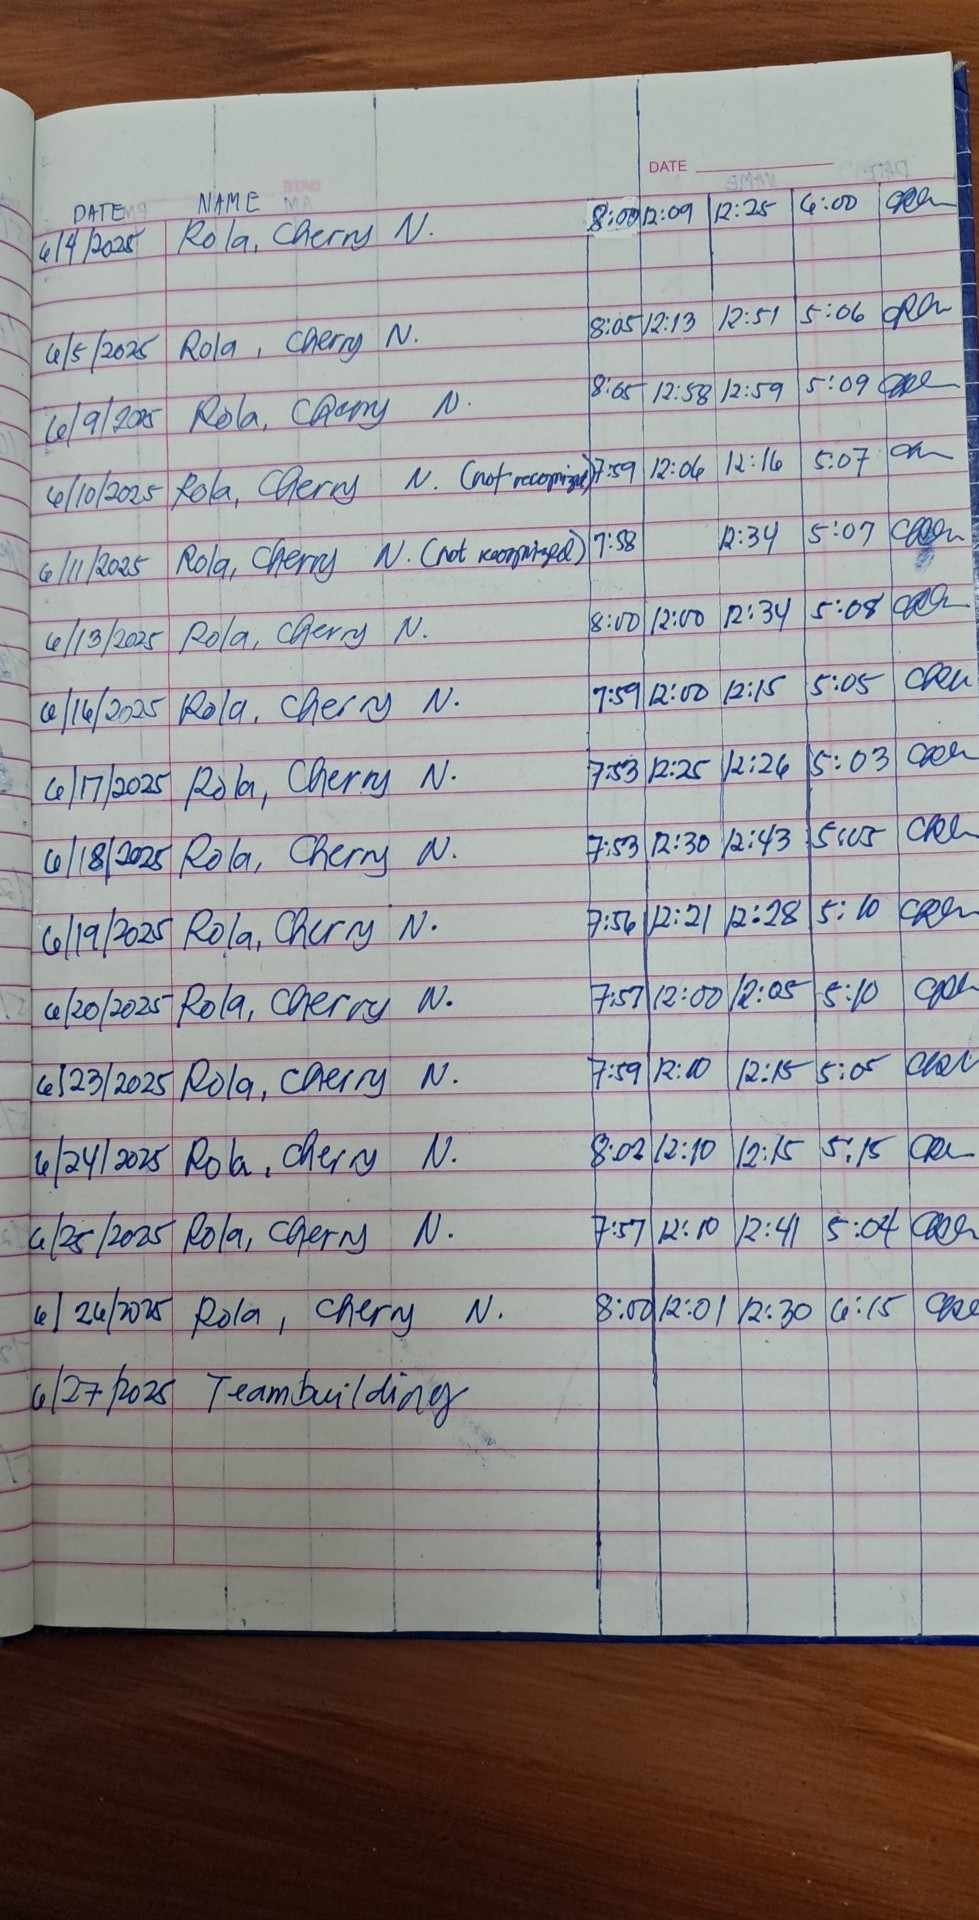 DATE
DATE NAME
6/4/2025 Rola, Cherry N. 8:00 12:09 12:25 6:00
6/5/2025 Rola, Cherry N. 8:05 12:13 12:51 5:06
6/9/2025 Rola, Cherry N. 8:05 12:58 12:59 5:09
6/10/2025 Rola, Cherry N. (not recognized) 7:59 12:06 12:16 5:07
6/11/2025 Rola, Cherry N. (not recognized) 7:58 12:34 5:07
6/13/2025 Rola, Cherry N. 8:00 12:00 12:34 5:08
6/16/2025 Rola, Cherry N. 7:59 12:00 12:15 5:05
6/17/2025 Rola, Cherry N. 7:53 12:25 12:26 5:03
6/18/2025 Rola, Cherry N. 7:53 12:30 12:43 5:05
6/19/2025 Rola, Cherry N. 7:56 12:21 12:28 5:10
6/20/2025 Rola, Cherry N. 7:57 12:00 12:05 5:10
6/23/2025 Rola, Cherry N. 7:59 12:10 12:15 5:05
6/24/2025 Rola, Cherry N. 8:02 12:10 12:15 5:15
6/25/2025 Rola, Cherry N. 7:57 12:10 12:41 5:04
6/26/2025 Rola, Cherry N. 8:00 12:01 12:30 6:15
6/27/2025 Teambuilding